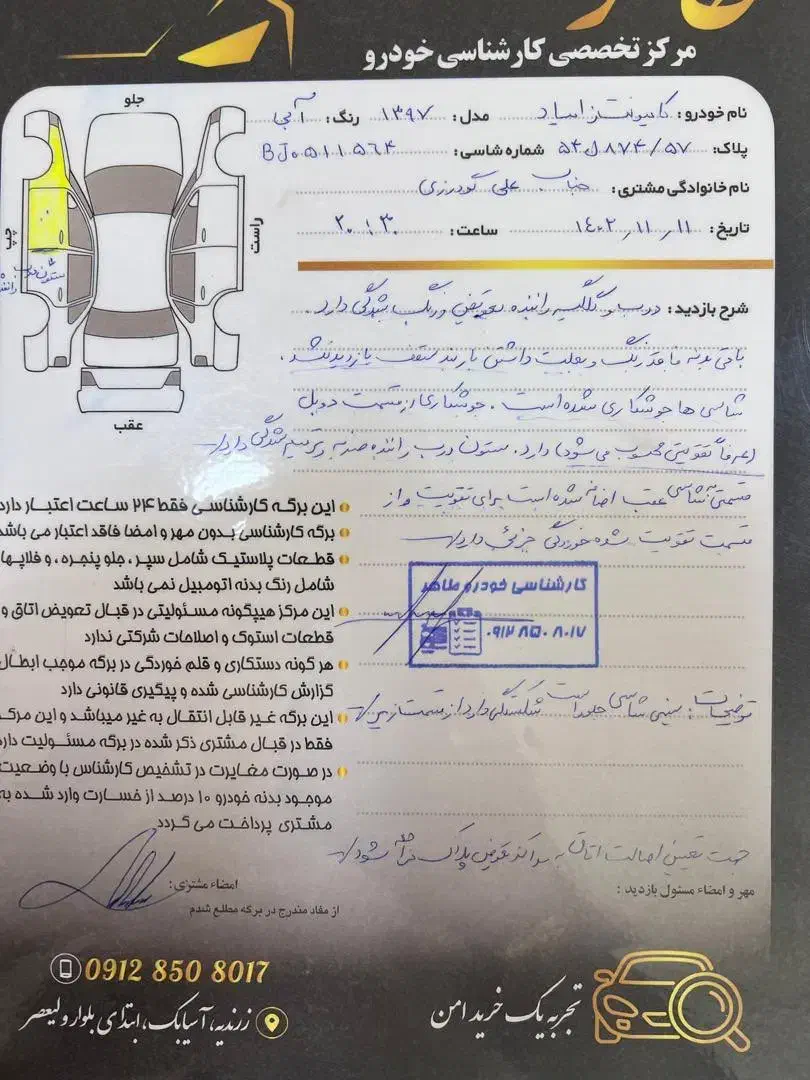 مرکز تخصصی کارشناسی خودرو
نام خودرو: کامیونت ایسوزو مدل: ۱۳۹۷ رنگ: آبی
پلاک: ۵۷/۸۷۴ل۵۴ شماره شاسی: BJ۰۵۱۱۵۶۴
نام خانوادگی مشتری: جناب علی گودرزی
تاریخ: ۱۴۰۲/۱۱/۱۱ ساعت: ۲۰:۳۰
جلو
چپ
راست
عقب
ستون درب
شرح بازدید: درب و گلگیر راننده تعویض و رنگ شدگی دارد.
باقی بدنه فاقد رنگ و بعلت داشتن باربند سقف بازدید نشد.
شاسی ها جوشکاری شده است. جوشکاری از قسمت دوبل
(عرفاً تقویتی محسوب می شود) دارد. ستون درب راننده ضربه و ترمیم شدگی دارد
قسمتی به شاسی عقب اضافه شده است برای تقویت و از
قسمت تقویت شده خوردگی جزئی دارد
کارشناسی خودرو طاهر
۰۹۱۲ ۸۵۰ ۸۰۱۷
توضیحات: سینی شاسی جلو راست شکستگی دارد از قسمت زیر
جهت تعیین اصالت اتاق به مراکز تعویض پلاک مراجعه شود
مهر و امضاء مسئول بازدید:
این برگه کارشناسی فقط ۲۴ ساعت اعتبار دارد
برگه کارشناسی بدون مهر و امضا فاقد اعتبار می باشد
قطعات پلاستیک شامل سپر، جلو پنجره، و فلاپها
شامل رنگ بدنه اتومبیل نمی باشد
این مرکز هیچگونه مسئولیتی در قبال تعویض اتاق و
قطعات استوک و اصلاحات شرکتی ندارد
هر گونه دستکاری و قلم خوردگی در برگه موجب ابطال
گزارش کارشناسی شده و پیگیری قانونی دارد
این برگه غیر قابل انتقال به غیر میباشد و این مرکز
فقط در قبال مشتری ذکر شده در برگه مسئولیت دارد
در صورت مغایرت در تشخیص کارشناس با وضعیت
موجود بدنه خودرو ۱۰ درصد از خسارت وارد شده به
مشتری پرداخت می گردد
امضاء مشتری:
از مفاد مندرج در برگه مطلع شدم
0912 850 8017
زرندیه، آسیابک، ابتدای بلوار ولیعصر
تجربه یک خرید امن